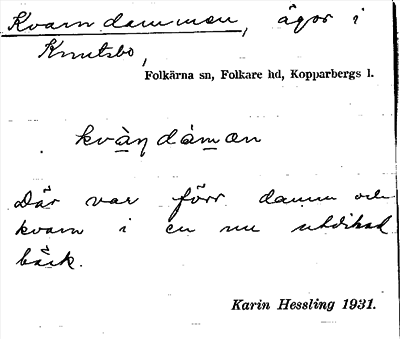 Kvarndammen, ägor i
Knutsbo,
Folkärna sn, Folkare hd, Kopparbergs l.
kvàṇdámən
Där var förr damm och
kvarn i en nu utdikad
bäck.
Karin Hessling 1931.